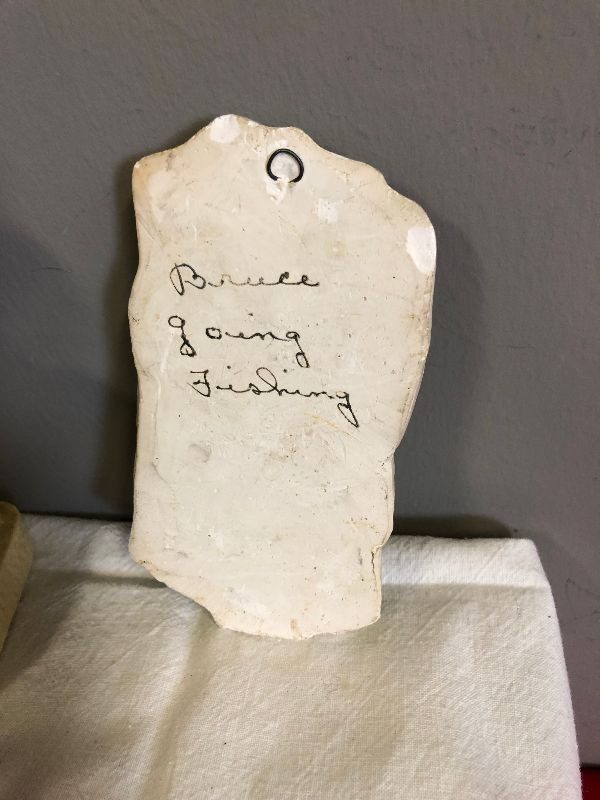 Bruce
going
Fishing